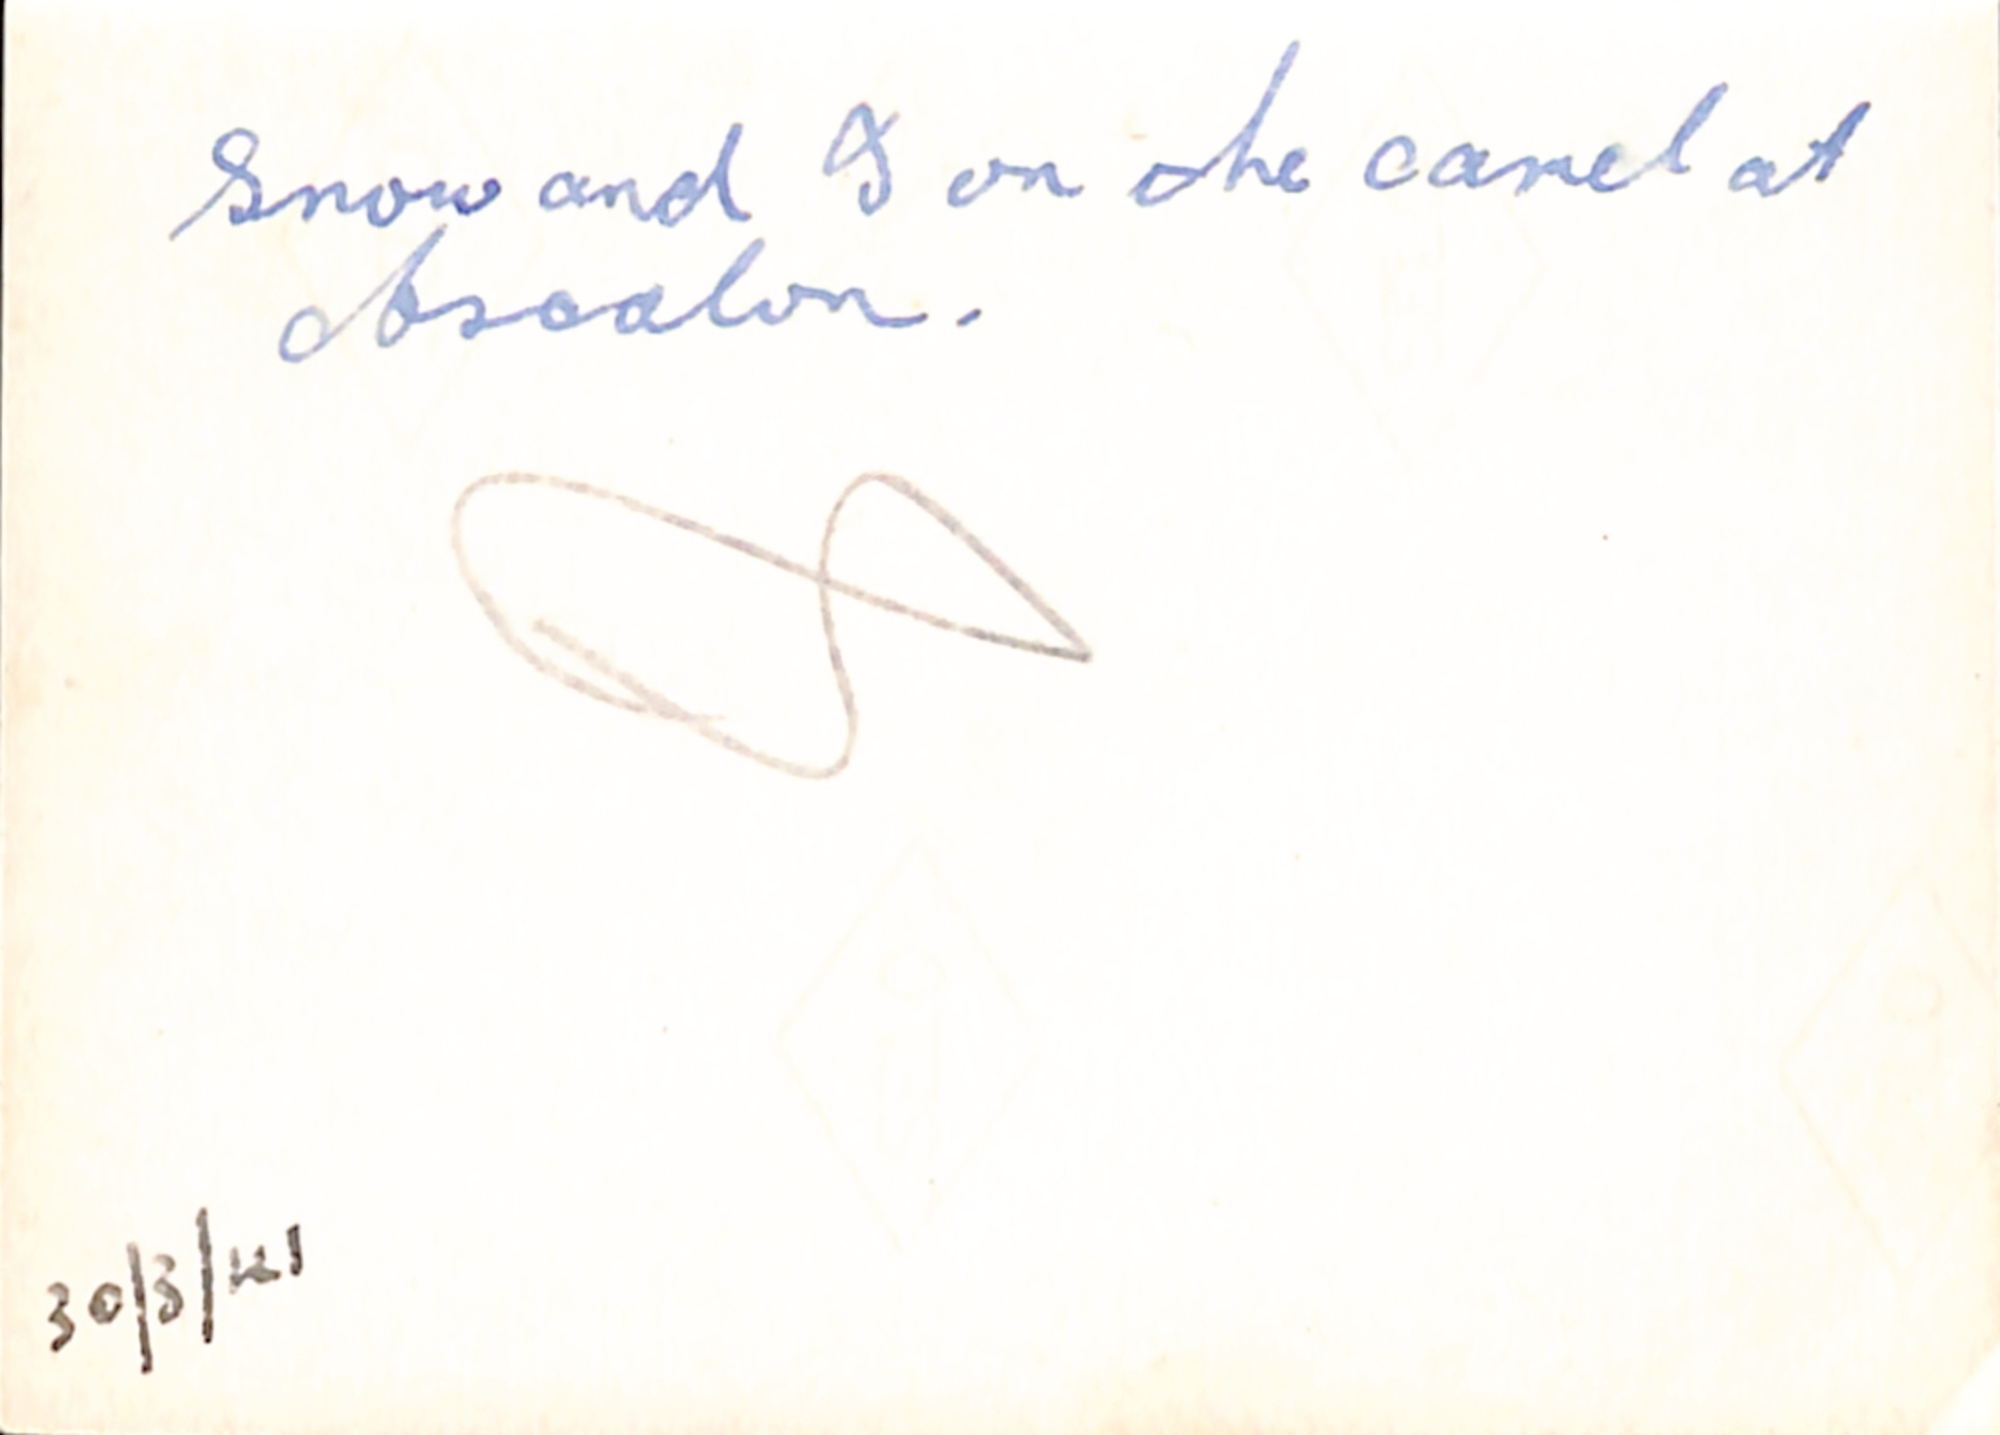 Snow and I on the camel at
Ascalon.
30/3/41